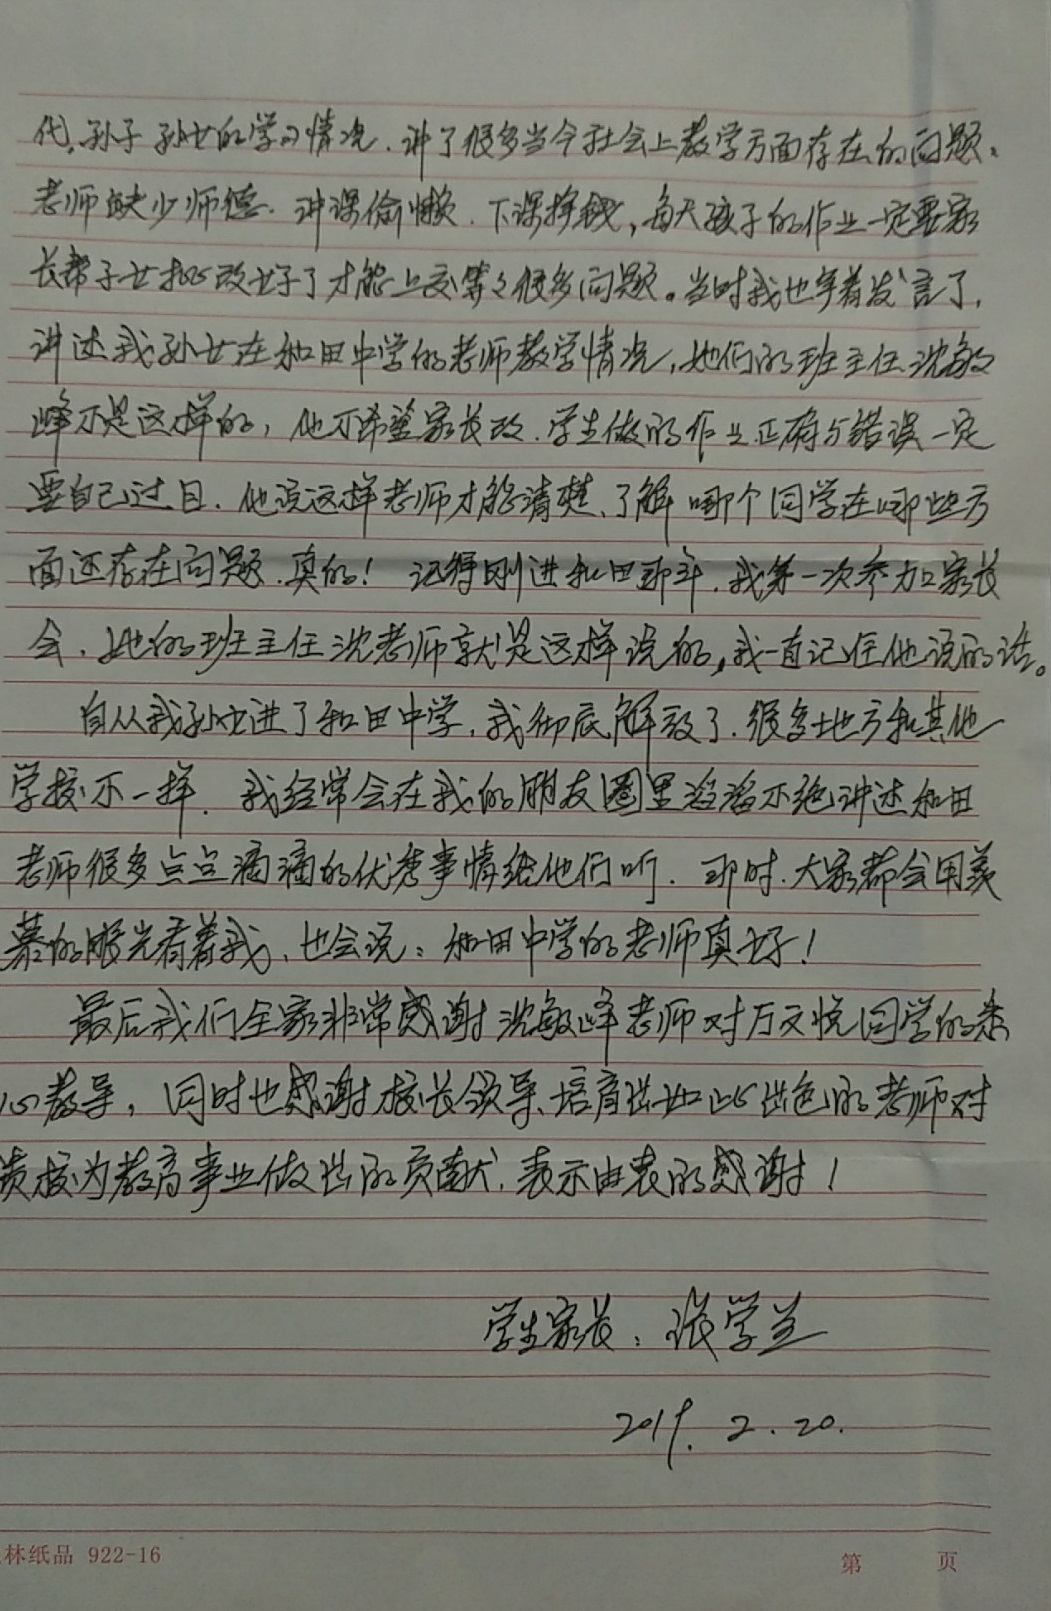 代,孙子孙女的学习情况.讲了很多当今社会上教学方面存在的问题。
老师缺少师德.讲课偷懒.下课挣钱,每天孩子的作业一定要家
长帮子女批改好了才能上交等々很多问题。当时我也争着发言了,
讲述我孙女在和田中学的老师教学情况,她们的班主任沈敏
峰不是这样的,他不希望家长改.学生做的作业正确与错误一定
要自己过目.他说这样老师才能清楚、了解哪个同学在哪些方
面还存在问题.真的!记得刚进和田那年.我第一次参加家长
会.她的班主任沈老师就是这样说的,我一直记住他说的话。
自从我孙女进了和田中学,我彻底解放了.很多地方和其他
学校不一样.我经常会在我的朋友圈里滔滔不绝讲述和田
老师很多点点滴滴的优秀事情给他们听.那时.大家都会用羡
慕的眼光看着我、也会说:和田中学的老师真好!
最后我们全家非常感谢沈敏峰老师对万文悦同学的悉
心教导,同时也感谢校长领导、培育出如此出色的老师对
贵校为教育事业做出的贡献.表示由衷的感谢!
学生家长:张学兰
2019.2.20.
林纸品 922-16
第 页